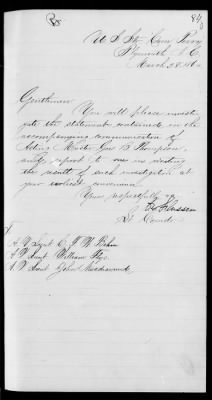 U S Str Com Perry
Plymouth N.C.
March 28 186
Gentlemen
You will please investi
gate the statement contained in the
accompanying communication of
Acting Master Geo B Thompson,
and report to me in writing
the result of such investigation at
your earliest convenience
Very respectfully yr
Flusser
Lt Comdr
A V Lieut C. F W Behm
A V Lieut William
A V Lieut John MacDiarmid